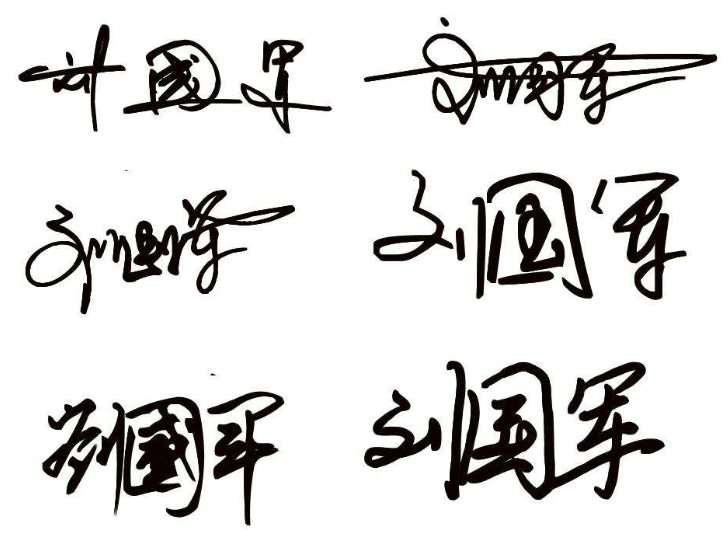 刘國军 刘国军
刘国军 刘国军
劉國軍 刘国军